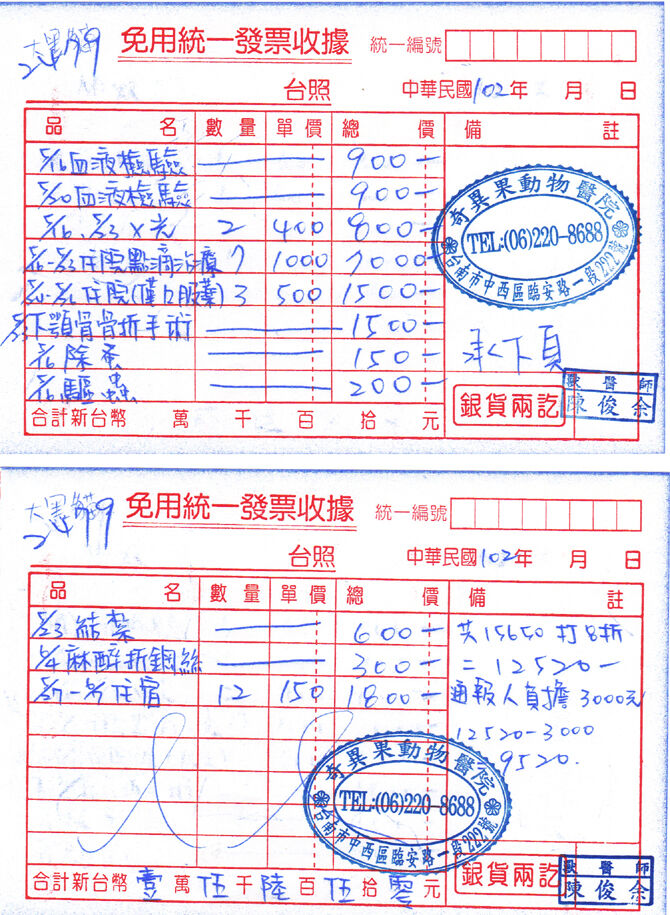 大黑貓
2499
免用統一發票收據
統一編號
台照 中華民國102年 月 日
品 名 數量 單價 總 價 備 註
5/16血液檢驗 900-
5/30血液檢驗 900-
5/16、5/23 X光 2 400 800-
住院點滴治療 7 1000 7000-
住院(僅口服藥) 3 500 1500-
下顎骨骨折手術 1500-
除蚤 150-
驅蟲 200-
承下頁
奇異果動物醫院
TEL:(06)220-8688
台南市中西區臨安路一段222號
合計新台幣 萬 千 百 拾 元
銀貨兩訖
獸醫師
陳俊余
大黑貓
2499
免用統一發票收據
統一編號
台照 中華民國102年 月 日
品 名 數量 單價 總 價 備 註
5/23 結紮 600-
麻醉拆鋼絲 300-
住宿 12 150 1800-
共15650 打8折
=12520-
通報人負擔3000元
12520-3000
9520.
奇異果動物醫院
TEL:(06)220-8688
台南市中西區臨安路一段222號
合計新台幣 壹 萬 伍 千 陸 百 伍 拾 零 元
銀貨兩訖
獸醫師
陳俊余